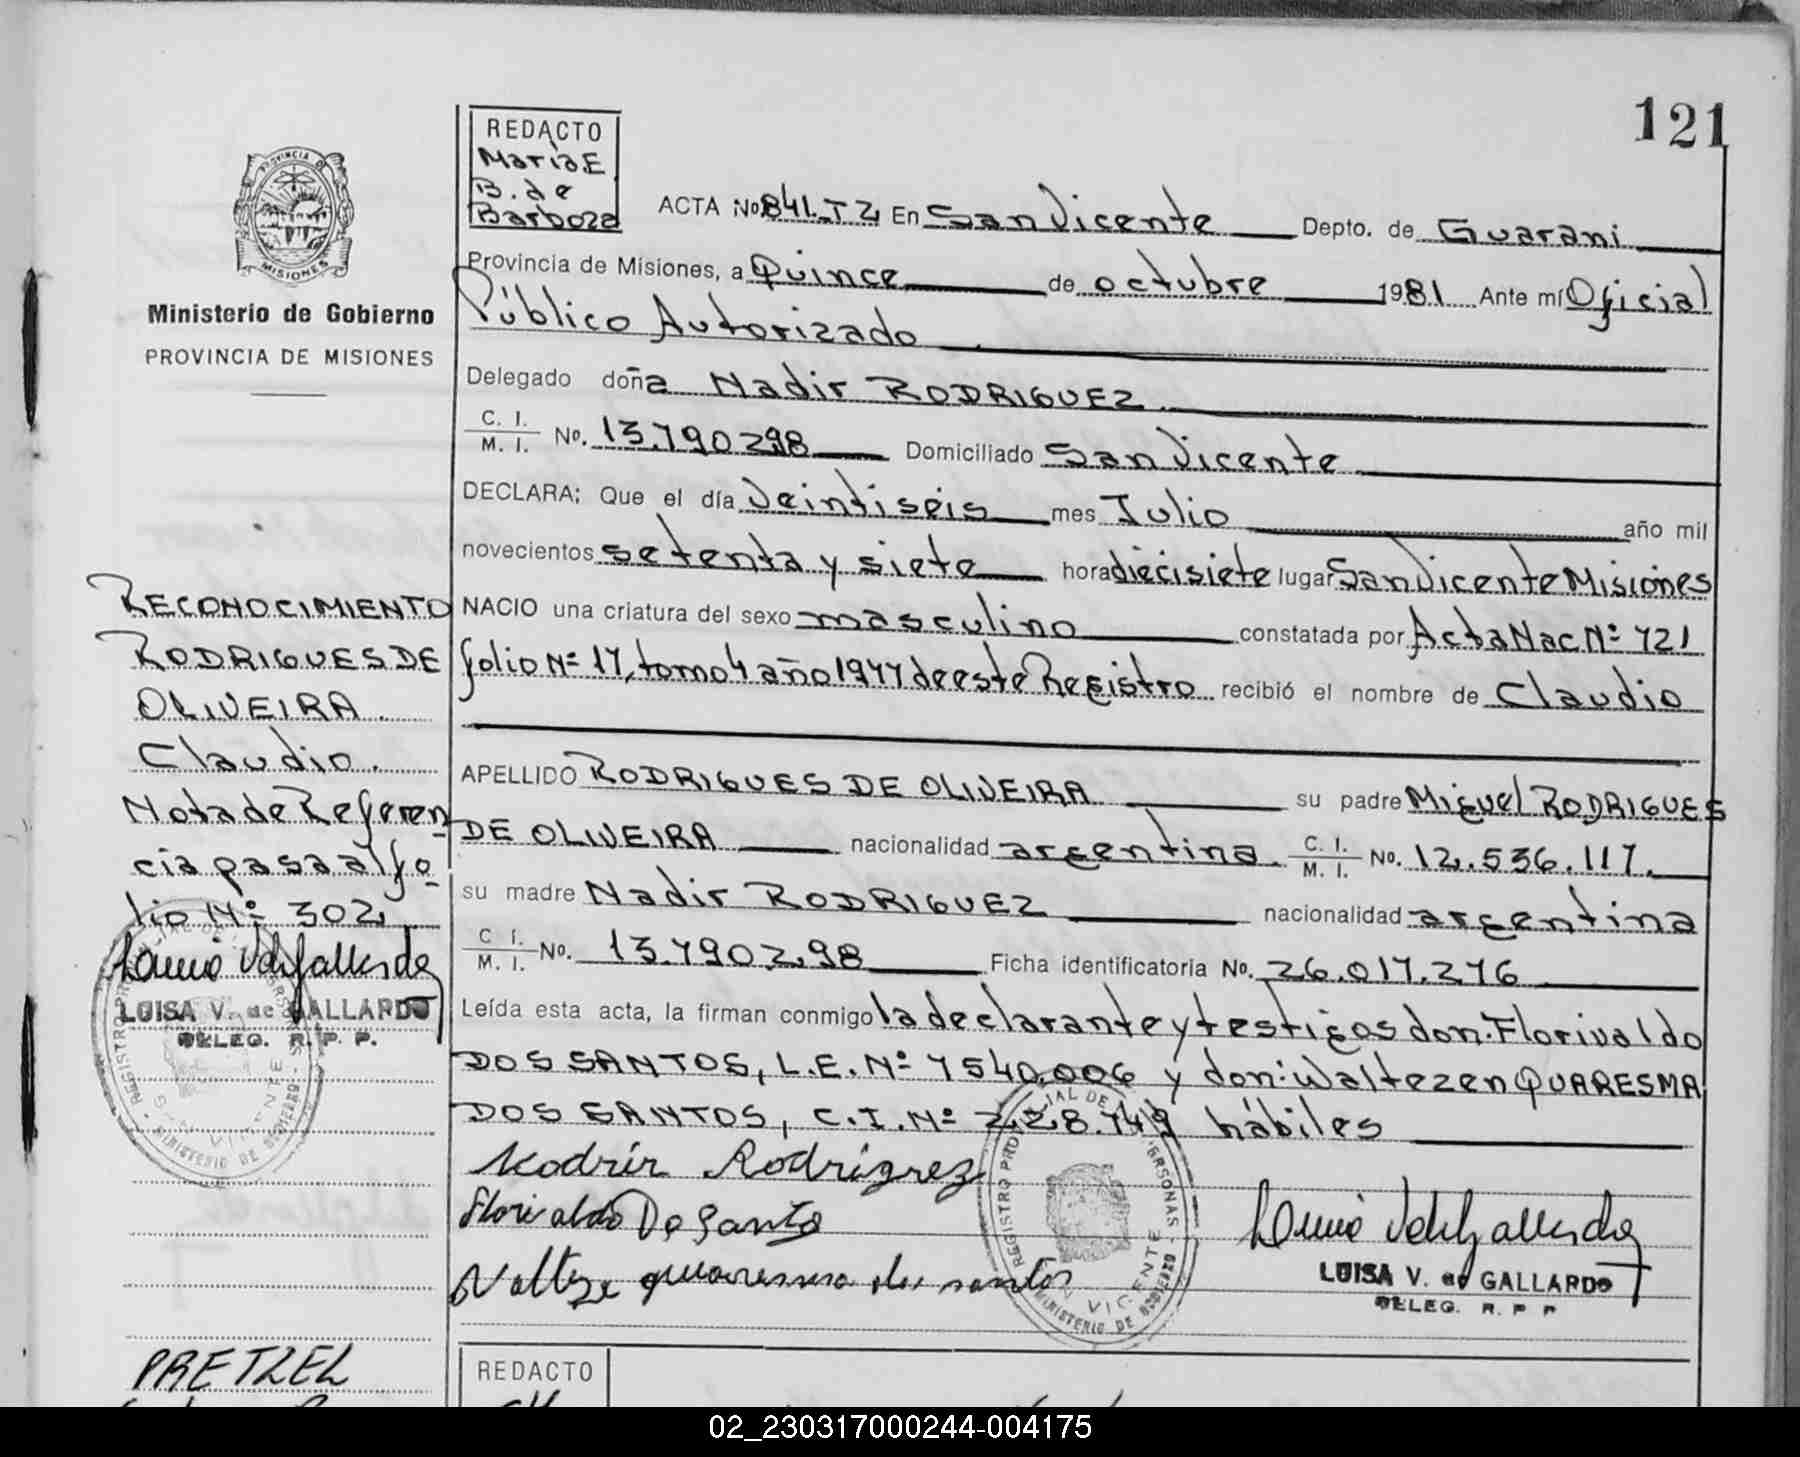 121
PROVINCIA DE
MISIONES
Ministerio de Gobierno
PROVINCIA DE MISIONES
REDACTO
Maria E
B. de
Barboza
ACTA No 841 T2 En San Vicente Depto. de Guarani
Provincia de Misiones, a Quince de octubre 1981 Ante mí Oficial
Público Autorizado
Delegado doña Nadir RODRIGUEZ
C. I.
M. I. No. 13.790298 Domiciliado San Vicente
DECLARA: Que el día Veintiséis mes Julio año mil
novecientos setenta y siete hora diecisiete lugar San Vicente Misiones
NACIO una criatura del sexo masculino constatada por Acta Nac Nº 721
folio Nº 17, tomo 4 año 1977 de este Registro recibió el nombre de Claudio
APELLIDO RODRIGUES DE OLIVEIRA su padre Miguel RODRIGUES
DE OLIVEIRA nacionalidad argentina C. I.
M. I. No. 12.536.117.
su madre Nadir RODRIGUEZ nacionalidad argentina
C. I.
M. I. No. 13.790298 Ficha identificatoria No. 26.017.276
Leída esta acta, la firman conmigo la declarante y testigos don: Florivaldo
DOS SANTOS, L.E. Nº 7540.006 y don: Waltezen QUARESMA
DOS SANTOS, C.I. Nº 228.749 hábiles
Rodriguez
Florivaldo Do Santo
quaresma dos santos
LUISA V. de GALLARDO
DELEG. R. P. P.
RECONOCIMIENTO
RODRIGUES DE
OLIVEIRA
Claudio.
Nota de Referen
cia pasa al fo
lio Nº 302
LUISA V. de GALLARDO
DELEG. R. P. P.
PRETZEL
REDACTO
02_230317000244-004175